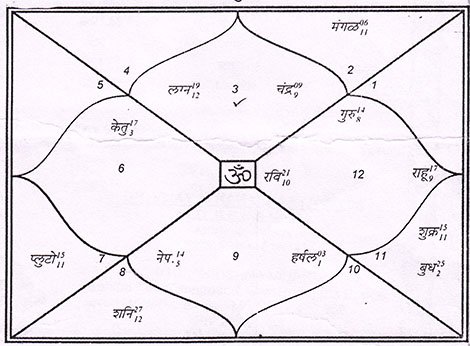 मंगळ 06 11
4
2
5
लग्न 19 12
3
चंद्र 09 9
1
✓
केतु 17 3
गुरु 14 8
6
ॐ
रवि 21 10
12
राहू 17 9
शुक्र 15 11
प्लुटो 15 11
7
नेप. 14 5
9
हर्षल 03 1
11
बुध 25 2
8
10
शनि 27 12